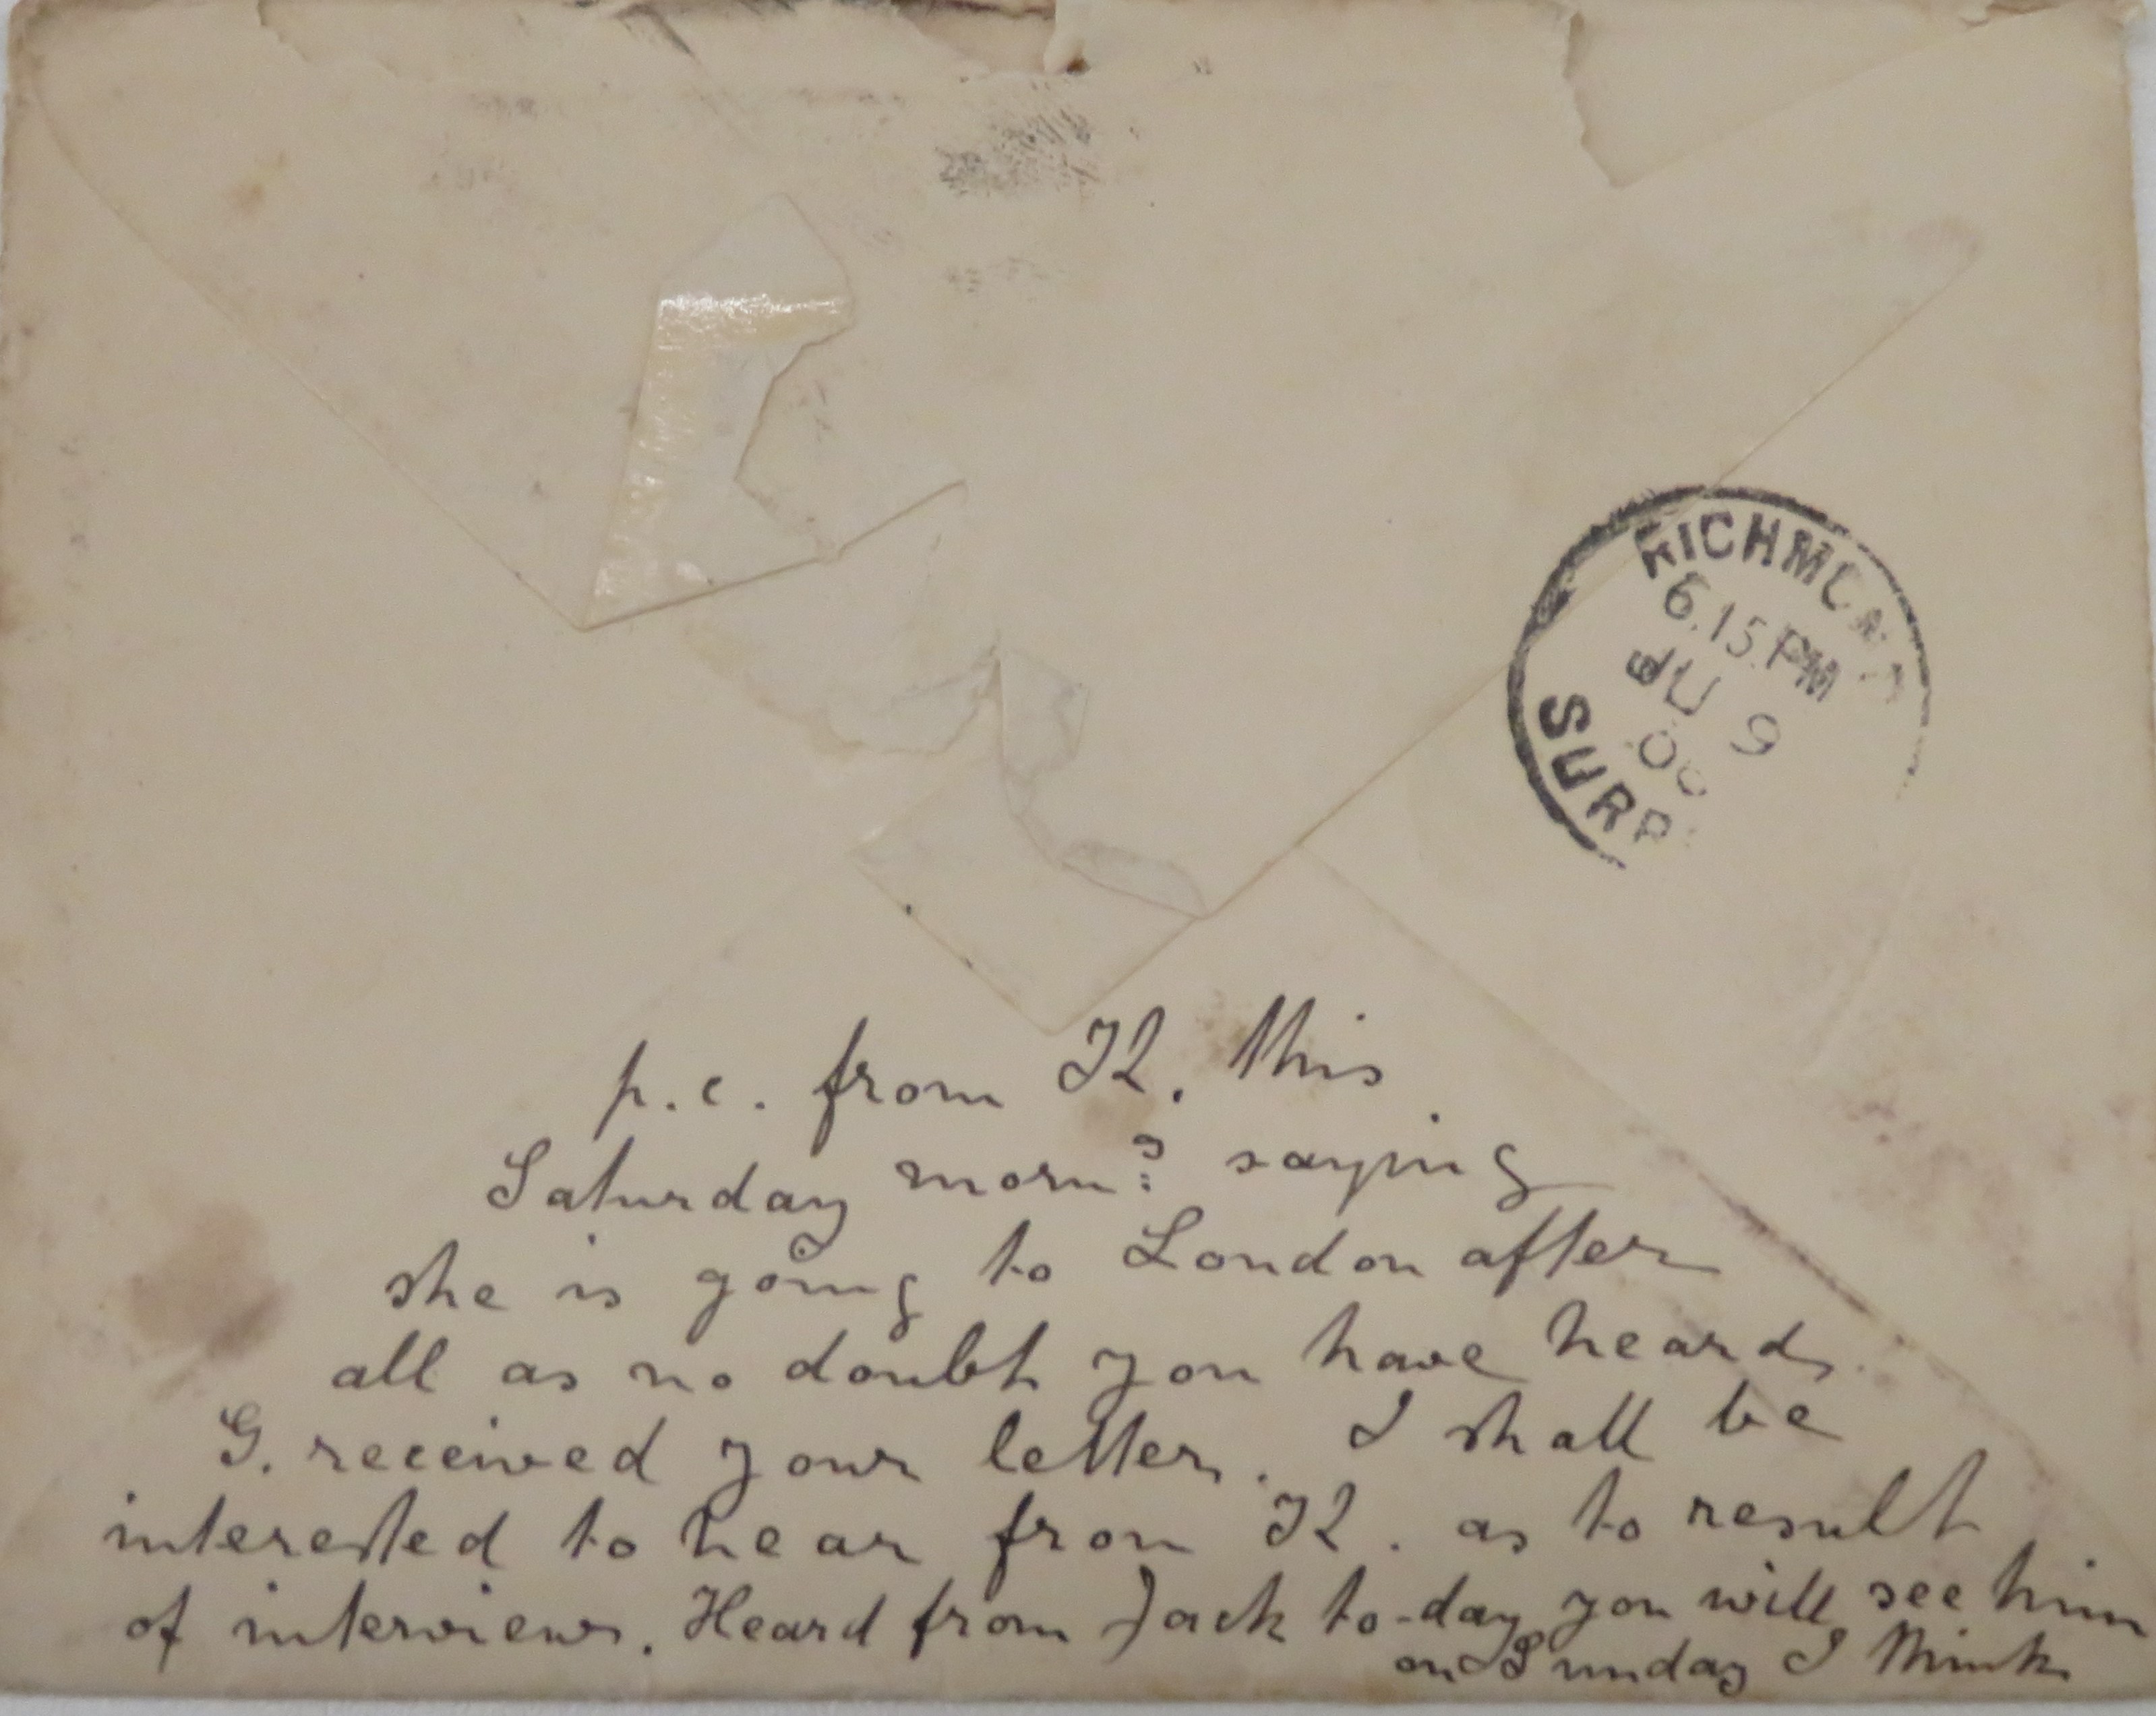 RICHMOND
6.15 PM
JU 9
00
SURR
p.c. from K. this
Saturday morng saying
she is going to London after
all as no doubt you have heard
G. received your letter. I shall be
interested to hear from K. as to result
of interview. Heard from Jack to-day you will see him
on Sunday I think